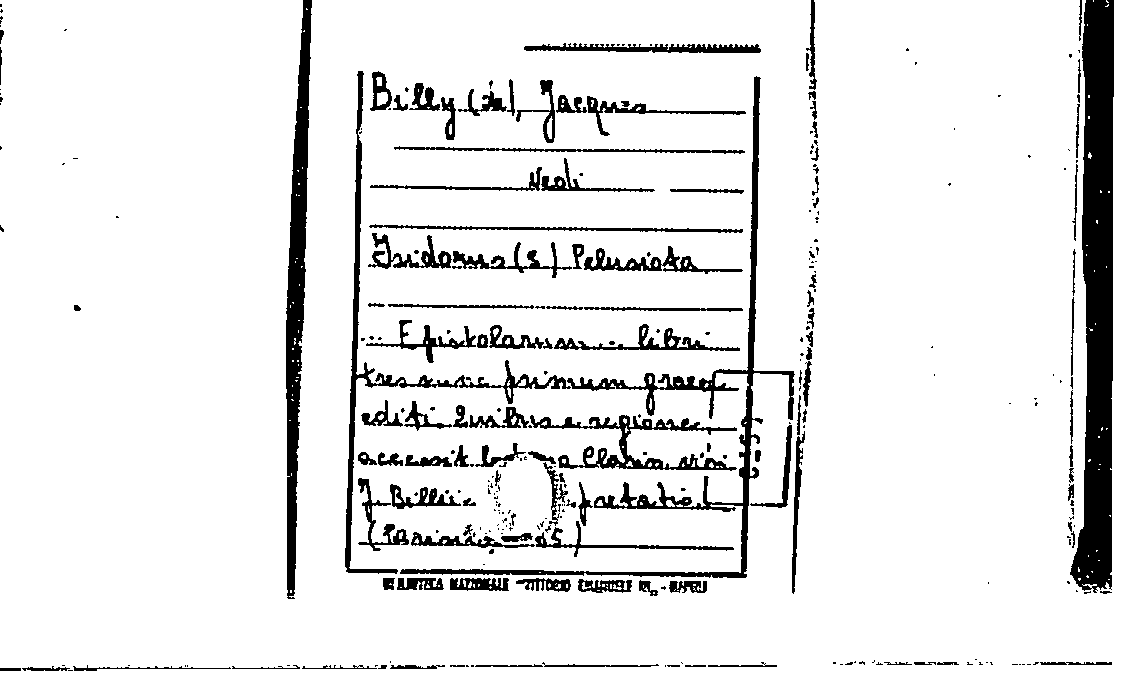 Billy (de), Jacques
Vedi
Isidorus (S) Pelusiota
... Epistolarum ... libri
tres nunc primum graece
editi. Quibus e regione
accessit Clariss. viri
J. Billii pretatio.
(Parisiis, 05)
BIBLIOTECA NAZIONALE "VITTORIO EMANUELE III" - NAPOLI